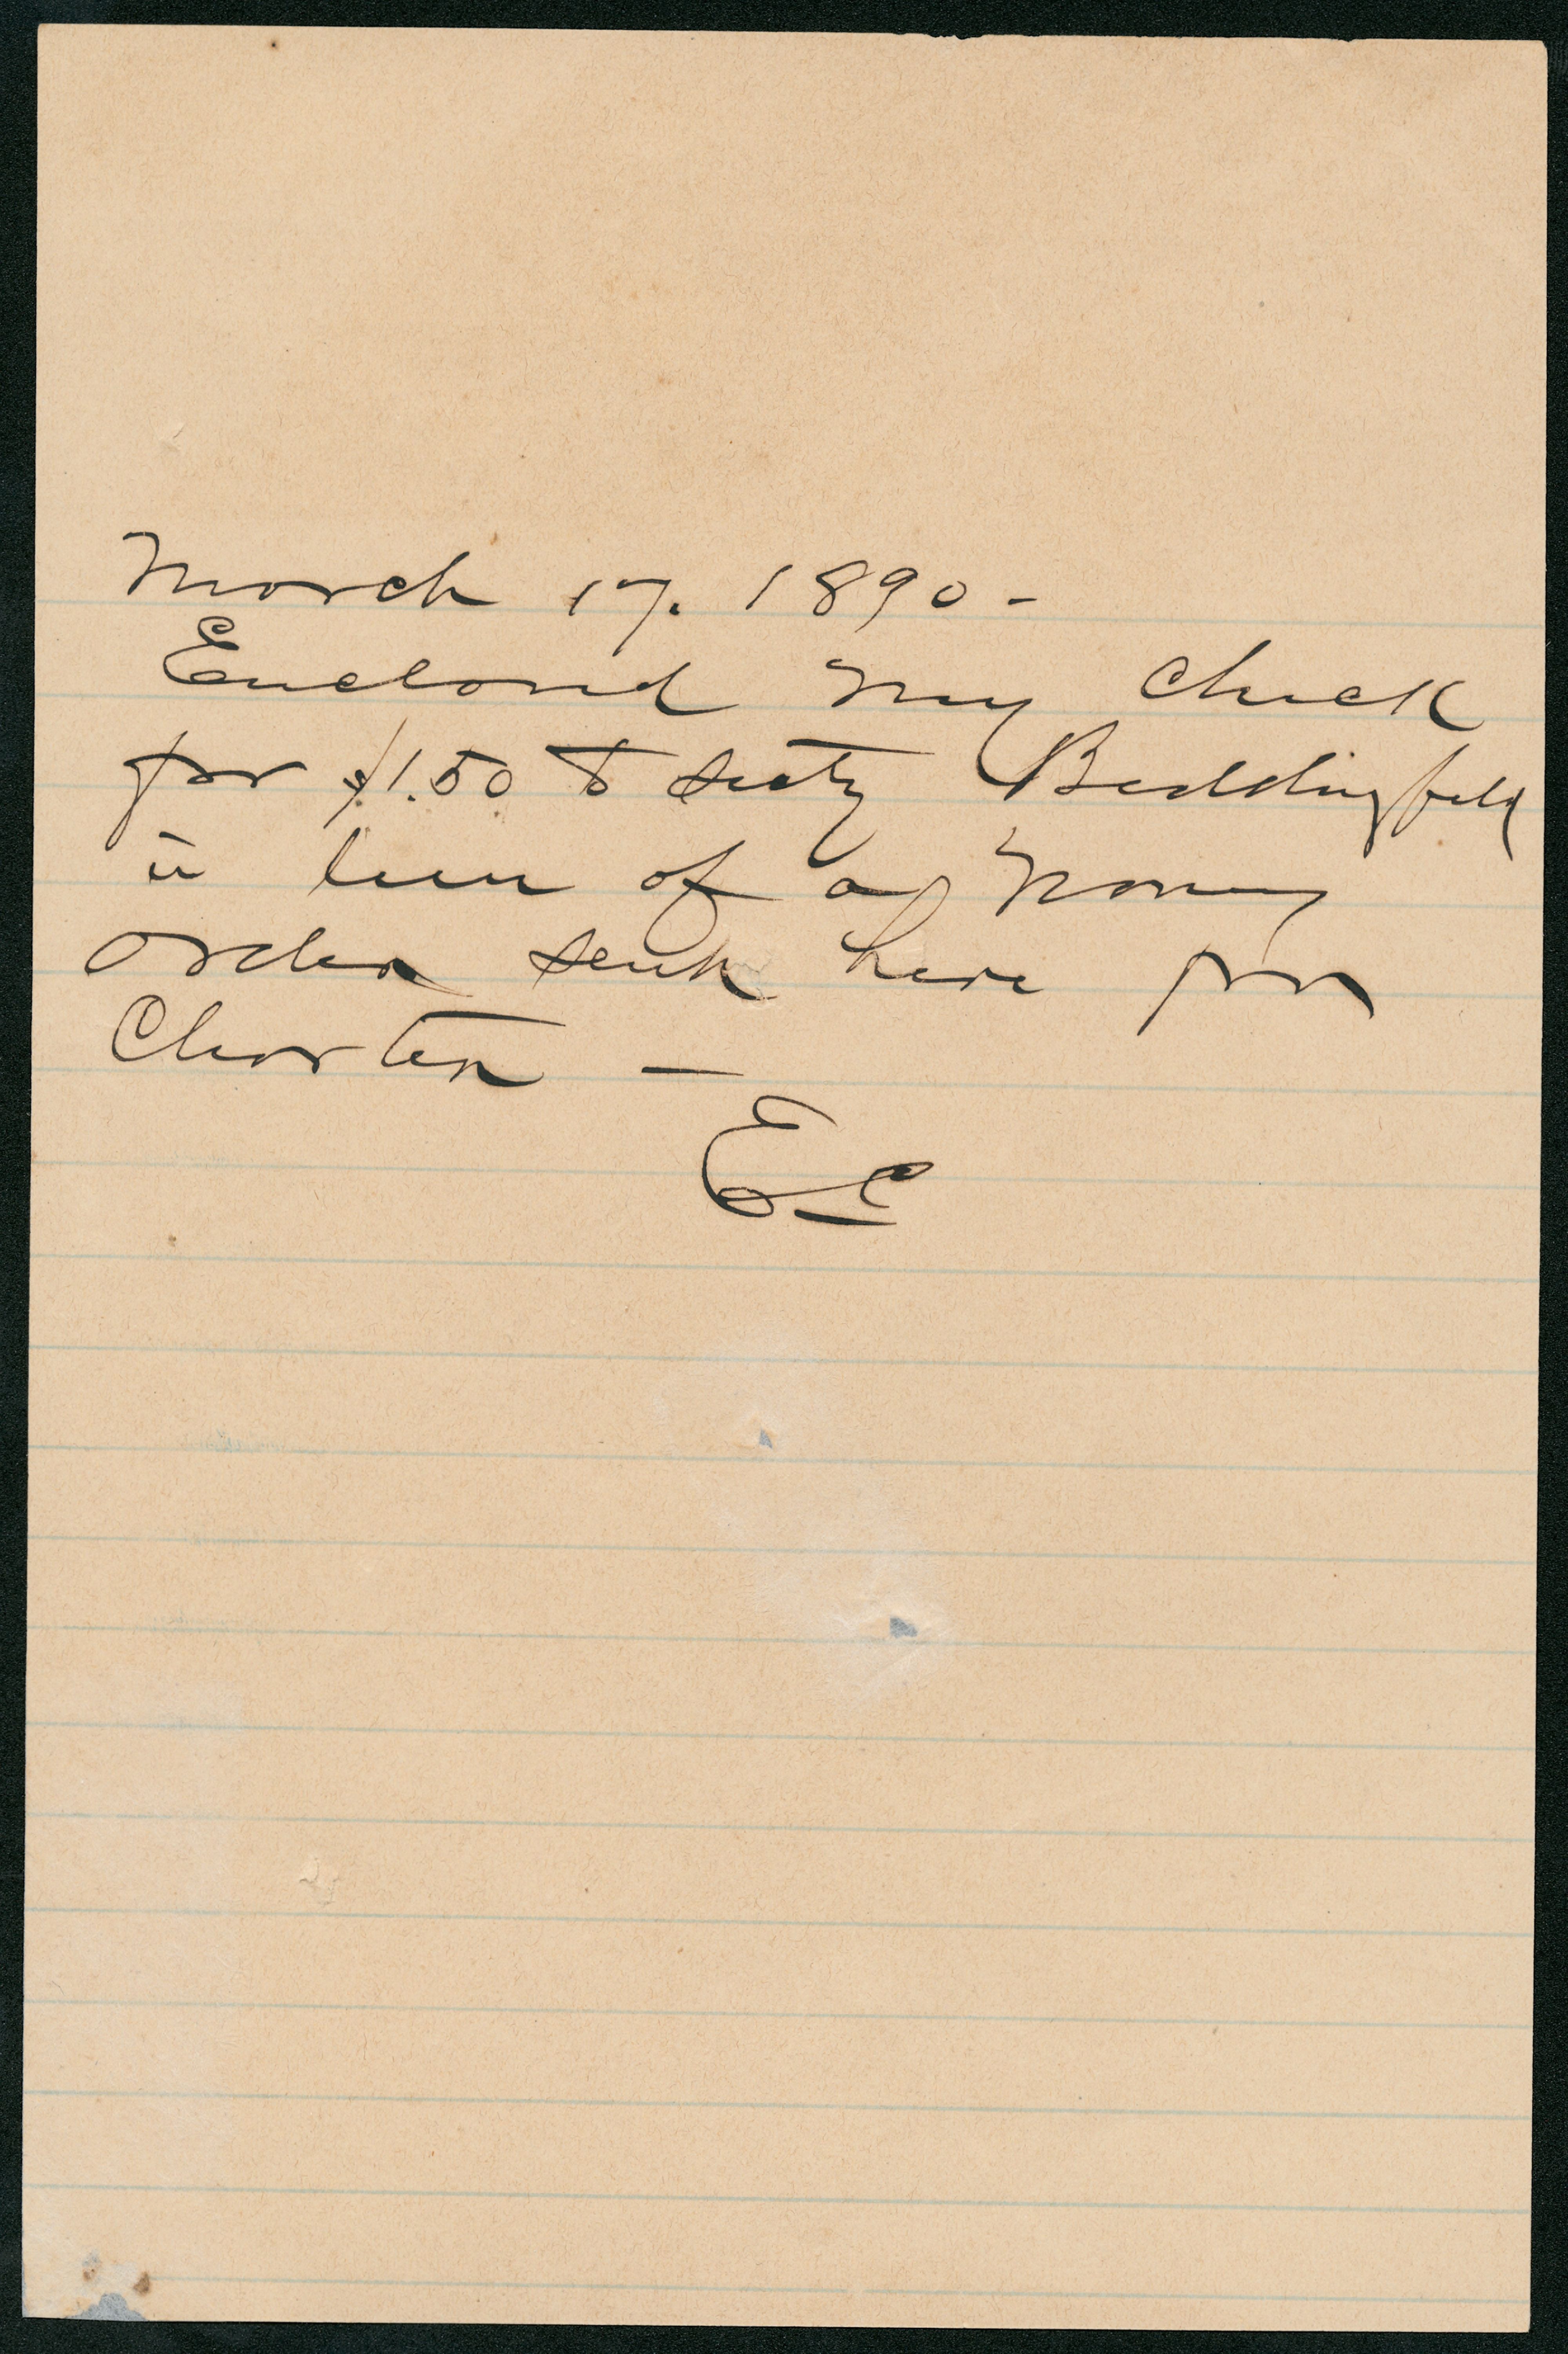 March 17. 1890 -
Enclosed my check
for $1.50 to secty Beddingfield
in lieu of a money
order sent here for
Charter —
EC